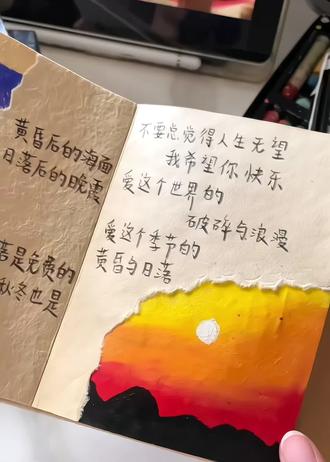 黄昏后的海面
日落后的晚霞
是免费的
秋冬也是
不要总觉得人生无望
我希望你快乐
爱这个世界的
破碎与浪漫
爱这个季节的
黄昏与日落